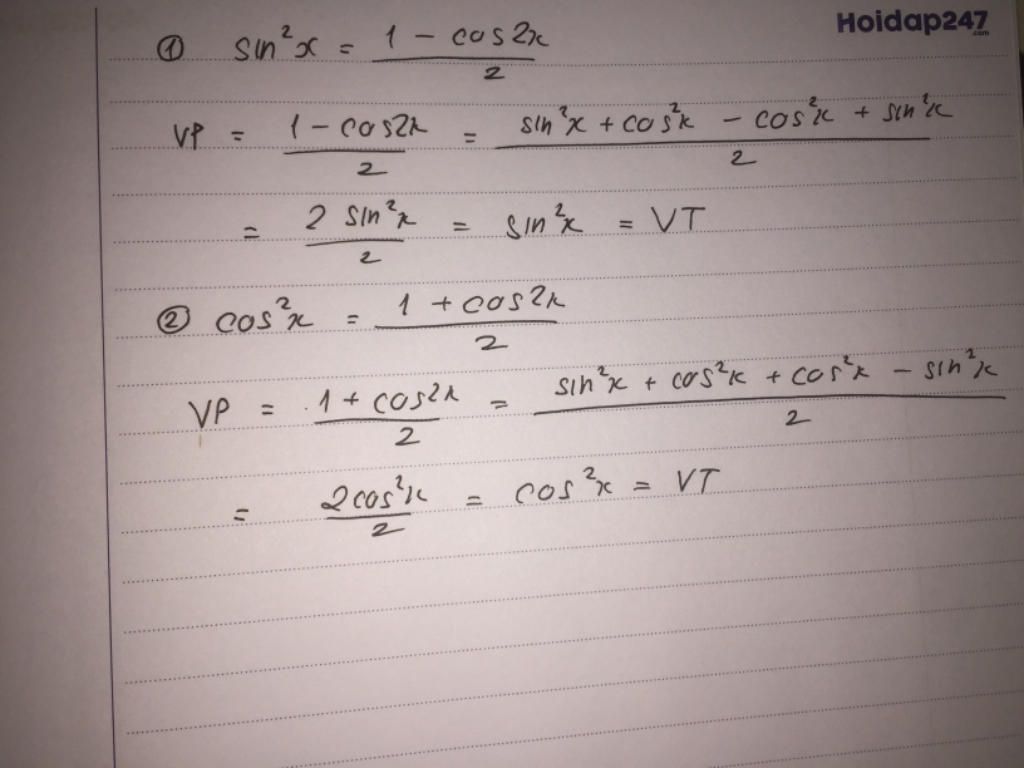 Hoidap247
.com
① sin²x = (1 - cos2x)/2
VP = (1 - cos2x)/2 = (sin²x + cos²x - cos²x + sin²x)/2
= (2 sin²x)/2 = sin²x = VT
② cos²x = (1 + cos2x)/2
VP = (1 + cos2x)/2 = (sin²x + cos²x + cos²x - sin²x)/2
= (2cos²x)/2 = cos²x = VT